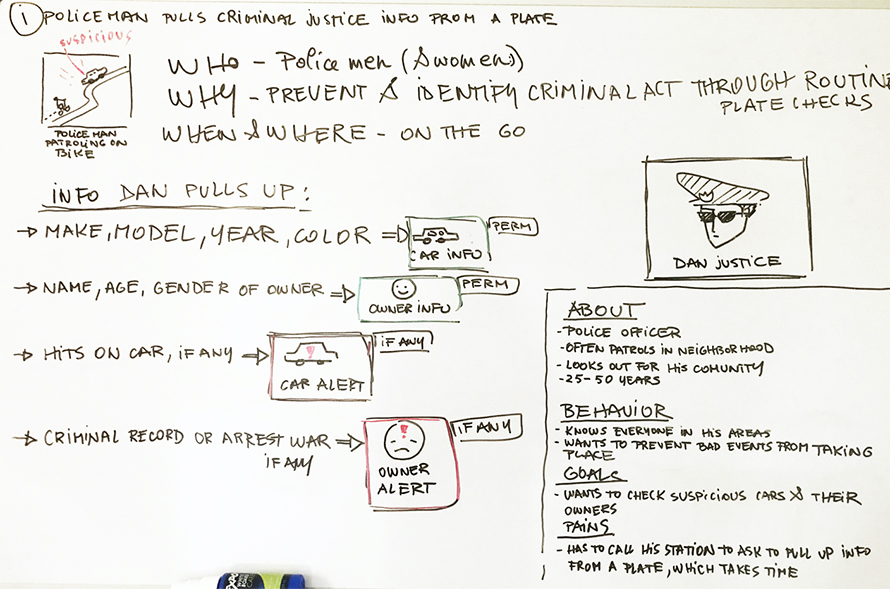 1 POLICEMAN PULLS CRIMINAL JUSTICE INFO FROM A PLATE
SUSPICIOUS
POLICE MAN
PATROLING ON
BIKE
WHO - Police men (& women)
WHY - PREVENT & IDENTIFY CRIMINAL ACT THROUGH ROUTINE
PLATE CHECKS
WHEN & WHERE - ON THE GO
INFO DAN PULLS UP:
→ MAKE, MODEL, YEAR, COLOR ⇒
CAR INFO
PERM
→ NAME, AGE, GENDER OF OWNER ⇒
OWNER INFO
PERM
→ HITS ON CAR, IF ANY ⇒
!
CAR ALERT
IF ANY
→ CRIMINAL RECORD OR ARREST WAR ⇒
IF ANY
!
OWNER
ALERT
IF ANY
DAN JUSTICE
ABOUT
- POLICE OFFICER
- OFTEN PATROLS IN NEIGHBORHOOD
- LOOKS OUT FOR HIS COMUNITY
- 25-50 YEARS
BEHAVIOR
- KNOWS EVERYONE IN HIS AREAS
- WANTS TO PREVENT BAD EVENTS FROM TAKING
PLACE
GOALS
- WANTS TO CHECK SUSPICIOUS CARS & THEIR
OWNERS
PAINS
- HAS TO CALL HIS STATION TO ASK TO PULL UP INFO
FROM A PLATE, WHICH TAKES TIME